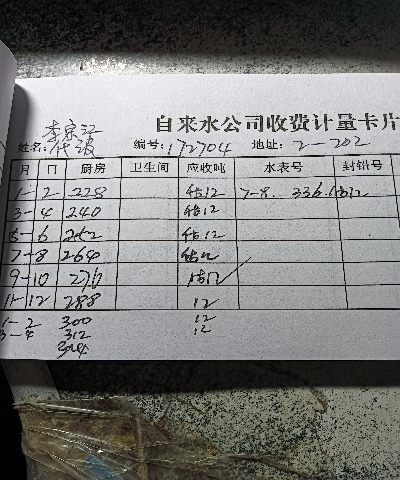 自来水公司收费计量卡片
姓名: 编号:172704 地址:2-202
月 口 厨房 卫生间 应收吨 水表号 封铅号
1-2 228 估12 7-8. 336.
3-4 240 估12
5-6 252 估12
7-8 264 估12
9-10 276 估12
11-12 288 12
1-2 300 12
3-4 312 12
324